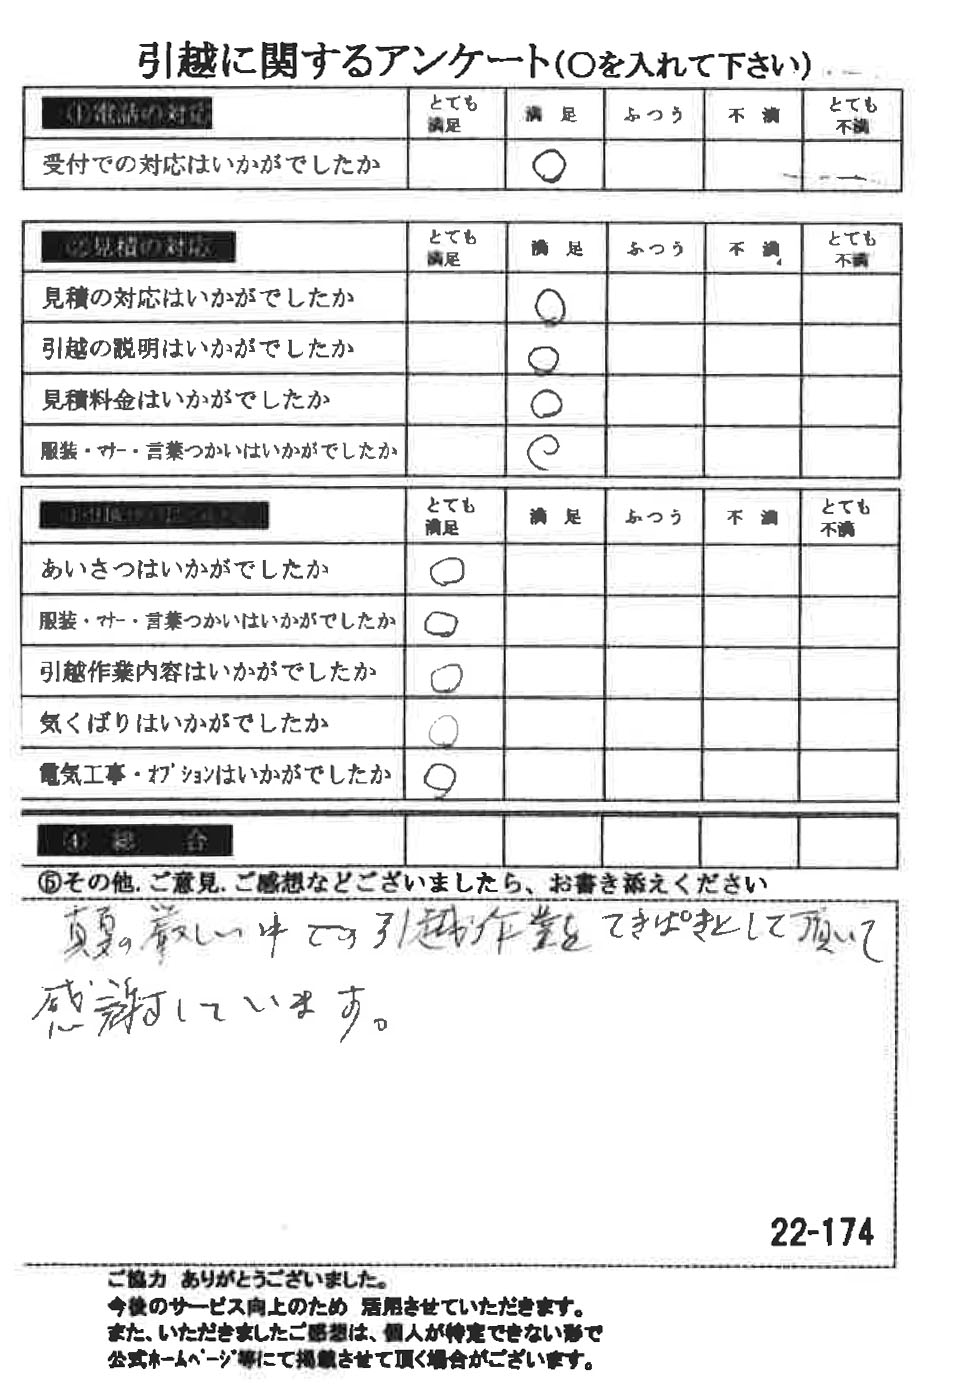 引越に関するアンケート(〇を入れて下さい)
①電話の対応 とても満足 満足 ふつう 不満 とても不満
受付での対応はいかがでしたか 〇
②見積の対応 とても満足 満足 ふつう 不満 とても不満
見積の対応はいかがでしたか 〇
引越の説明はいかがでしたか 〇
見積料金はいかがでしたか 〇
服装・マナー・言葉つかいはいかがでしたか 〇
とても満足 満足 ふつう 不満 とても不満
あいさつはいかがでしたか 〇
服装・マナー・言葉つかいはいかがでしたか 〇
引越作業内容はいかがでしたか 〇
気くばりはいかがでしたか 〇
電気工事・オプションはいかがでしたか 〇
④ 総 合
⑤その他.ご意見.ご感想などございましたら、お書き添えください
真夏の厳しい中での引越作業をてきぱきとして頂いて
感謝しています。
22-174
ご協力 ありがとうございました。
今後のサービス向上のため 活用させていただきます。
また、いただきましたご感想は、個人が特定できない形で
公式ホームページ等にて掲載させて頂く場合がございます。